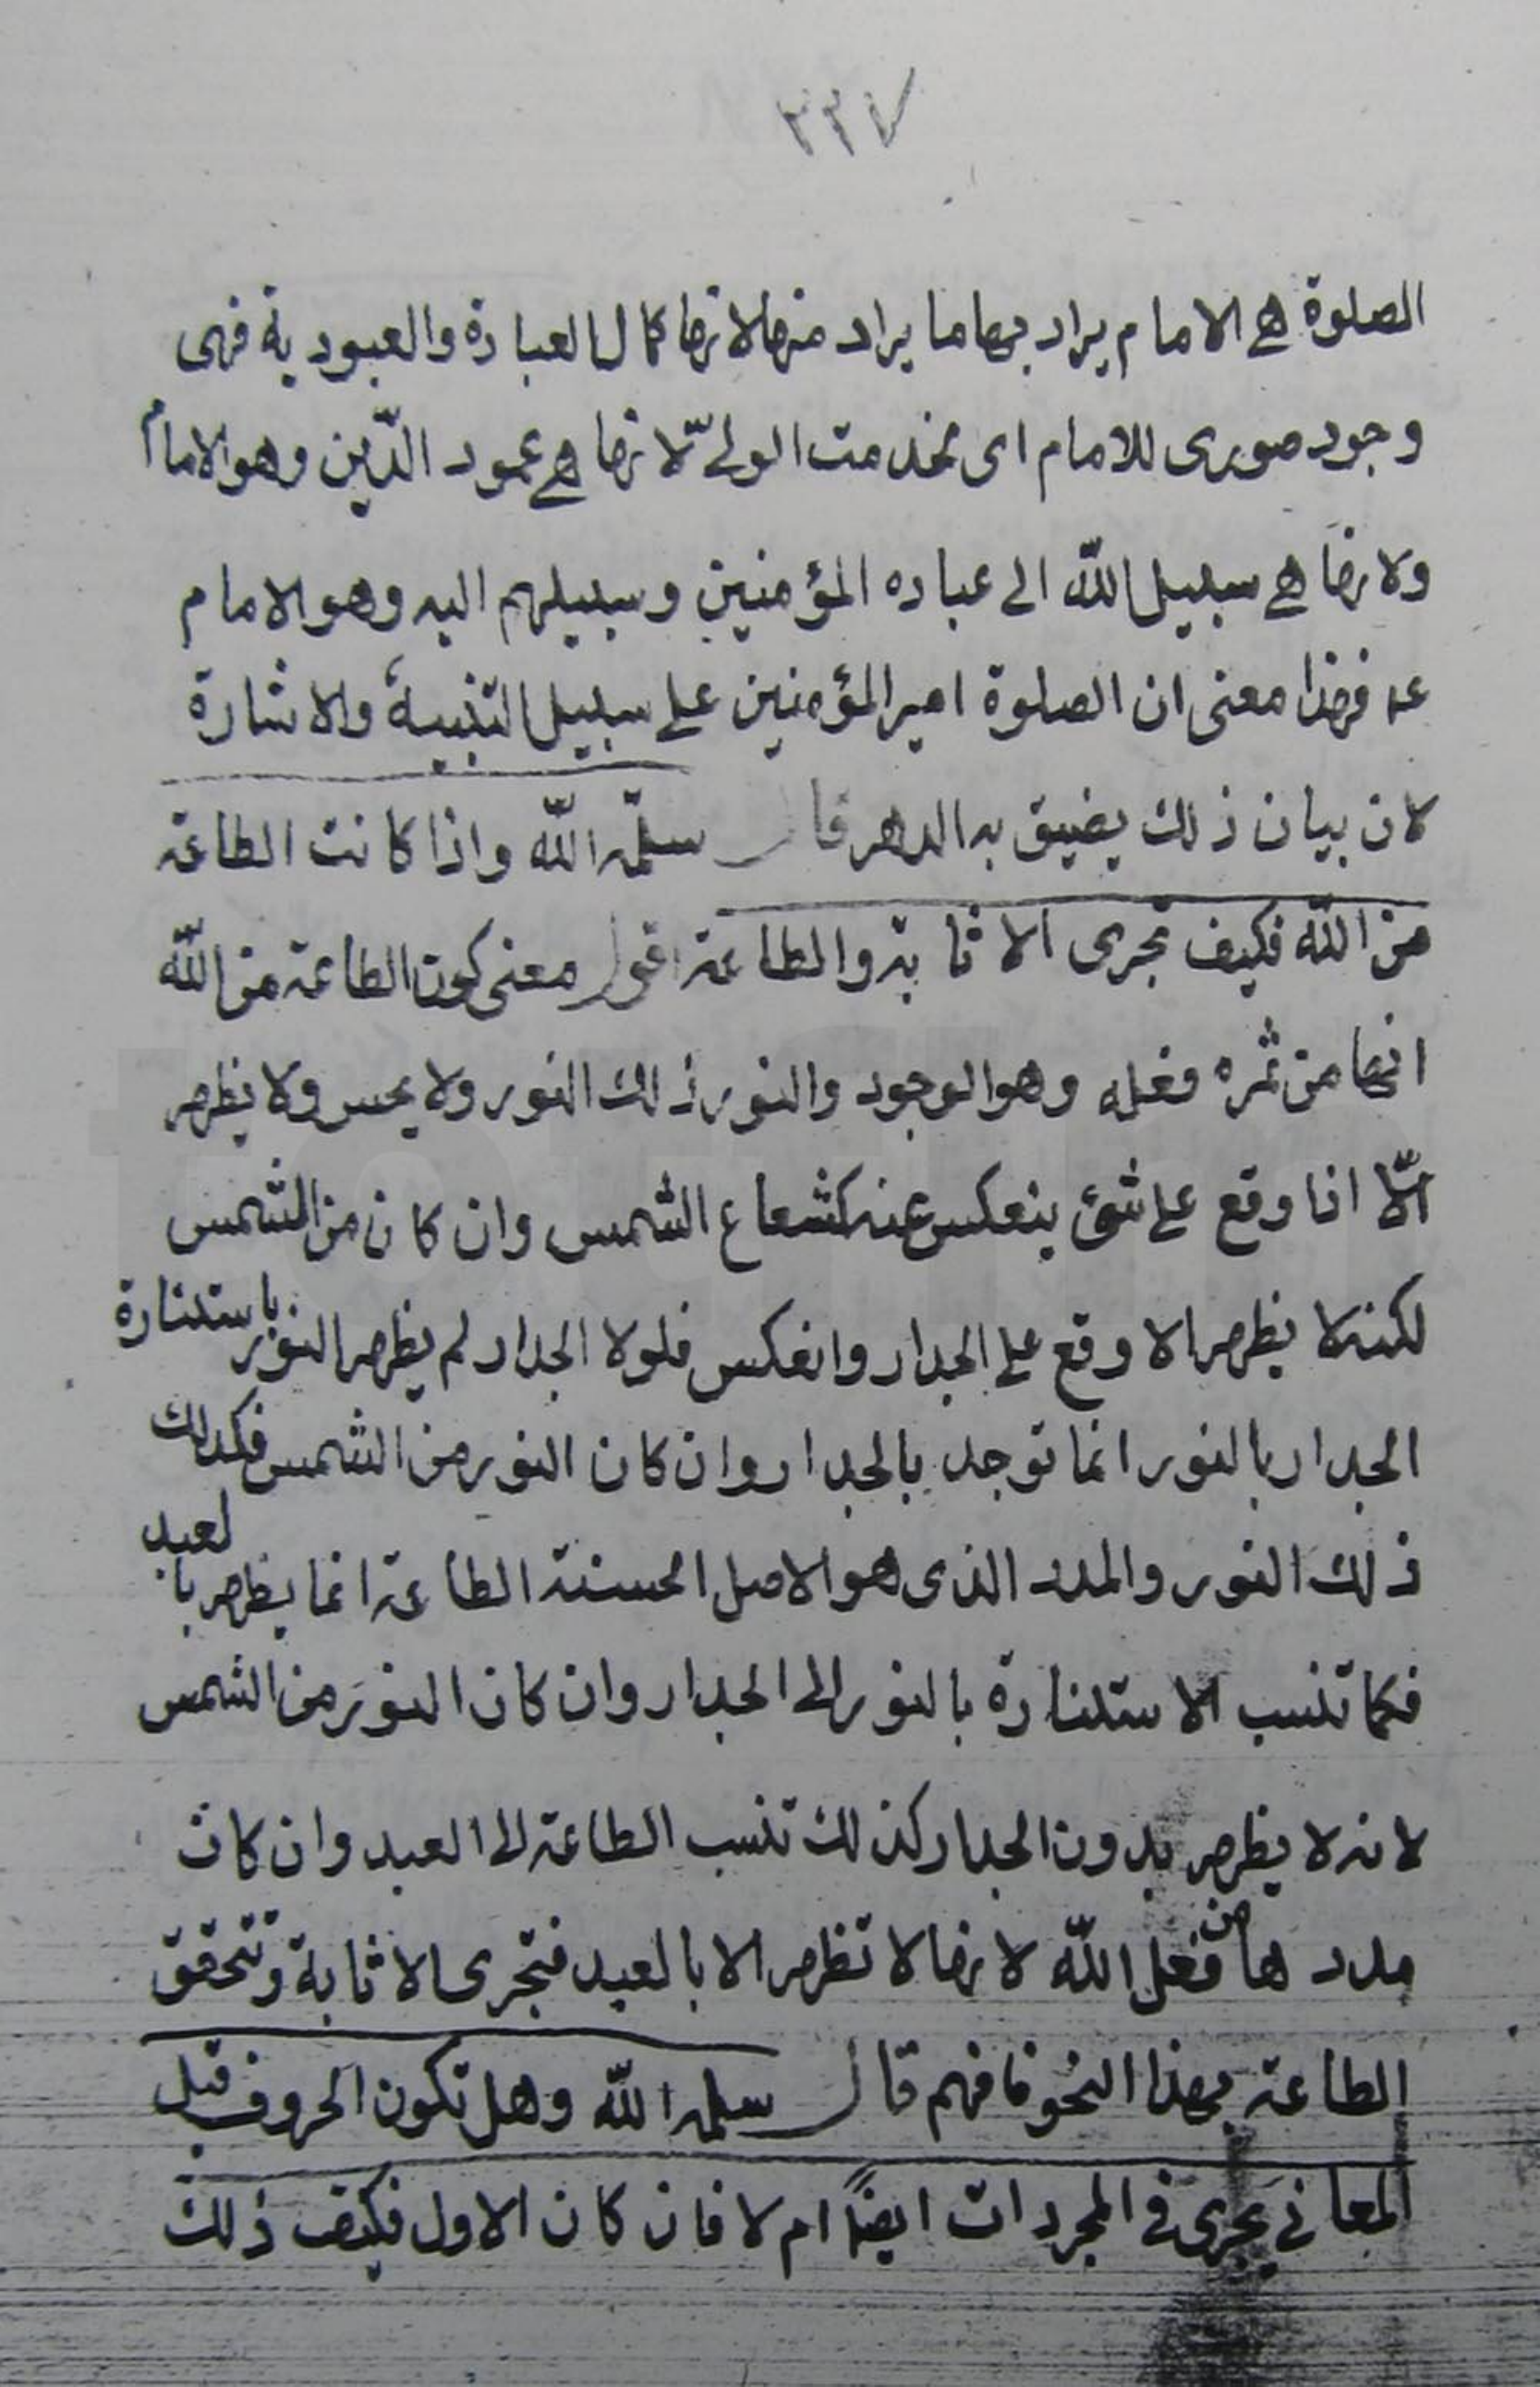 ٢٣٧
الصلوة هي الامام يراد بها ما يراد منها لانها كمال العبادة والعبودية فهى
وجود صورى للامام اى بخدمت الولي لانها هي عمود الدّين وهو الامام
ولانها هي سبيل اللّه الى عباده المؤمنين وسبيلهم اليه وهو الامام
عہ فهذا معنى ان الصلوة امير المؤمنين على سبيل التنبيه والاشارة
لان بيان ذلك يضيق به الدهر قال سلّمه اللّه واذا كانت الطاعة
من اللّه فكيف تجرى الاثابة والطاعة اقول معنى كون الطاعة من اللّه
انها من ثمره فعله وهو الوجود والنور ذلك النور ولا يحس ولا يظهر
الّا اذا وقع على شئ ينعكس عنه كشعاع الشمس وان كان من الشمس
لكنه لا يظهر الا وقع على الجدار وانعكس فلولا الجدار لم يظهر النور باستنارة
الجدار بالنور انما توجد بالجدار وان كان النور من الشمس فكذلك
ذلك النور والمدد الذى هو الاصل الحسنة الطاعة انما يظهر بالعبد
فكما تنسب الاستنارة بالنور الى الجدار وان كان النور من الشمس
لانه لا يظهر بدون الجدار كذلك تنسب الطاعة الى العبد وان كان
مددها من فعل اللّه لانها لا تظهر الا بالعبد فتجرى الاثابة وتتحقق
الطاعة بهذا النحو فافهم قال سلمه اللّه وهل تكون الحروف قبل
المعاني يجرى فى المجردات ايضًا ام لا فان كان الاول فكيف ذلك